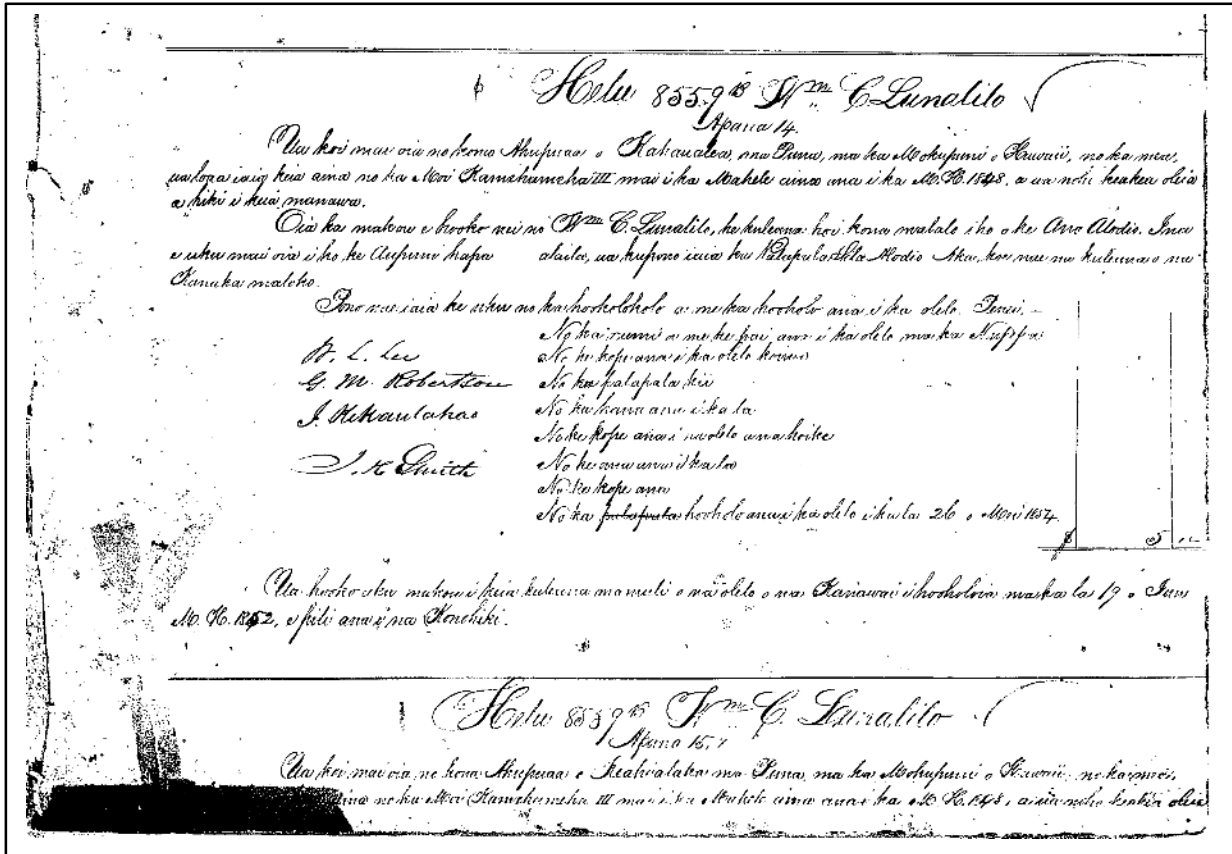 Helu 8559 B Wm C Lunalilo
Apana 14.
Ua koi mai oia no kona Ahupuaa o Kahaualea, ma Puna, ma ka Mokupuni o Hawaii, no ka mea,
ua loaa iaia keia aina no ka Moi Kamehameha III mai i ka Mahele aina ana i ka M.H. 1848, a ua noho keakea oleia
a hiki i keia manawa.
Oia ka makou e hooko nei no Wm C. Lunalilo, he kuleana hoi kona malalo iho o ke Ano Alodio. Ina
e uku mai oia i ko ke Aupuni hapa alaila, ua kupono iaia ka Palapala Sila Alodio Aka, koe nae na kuleana o na
Kanaka maloko.
Pono nae iaia ke uku no ka hookolokolo a me ka hooholo ana i ka olelo. Penei. -
No ka rumi a me ke pai ana i ka olelo ma ka Nupepa
W. L. Lee No ke kope ana i ka olelo
G. M. Robertson No ka palapala kii
J. Kekaulahao No ka hana ana i ka la
No ke kope ana i na olelo ana hoike
J. H Smith No ke ana ana i ka
No ke kope ana
No ka palapala hooholo ana i ka olelo i ka la 26 o Mei 1854. $ 5
Ua hooko aku makou i keia kuleana mamuli o na olelo o na Kanawai i hooholoia ma ka la 19 o Iune
M. H. 1852, e pili ana i na Konohiki.
Helu 8559 B Wm C. Lunalilo
Apana 15.
Ua koi mai oia, no kona Ahupuaa o Keahialaka ma Puna, ma ka Mokupuni o Hawaii, no ka mea,
aina no ka Moi Kamehameha III mai i ka Mahele aina ana i ka M. H. 1848, a ua noho keakea oleia